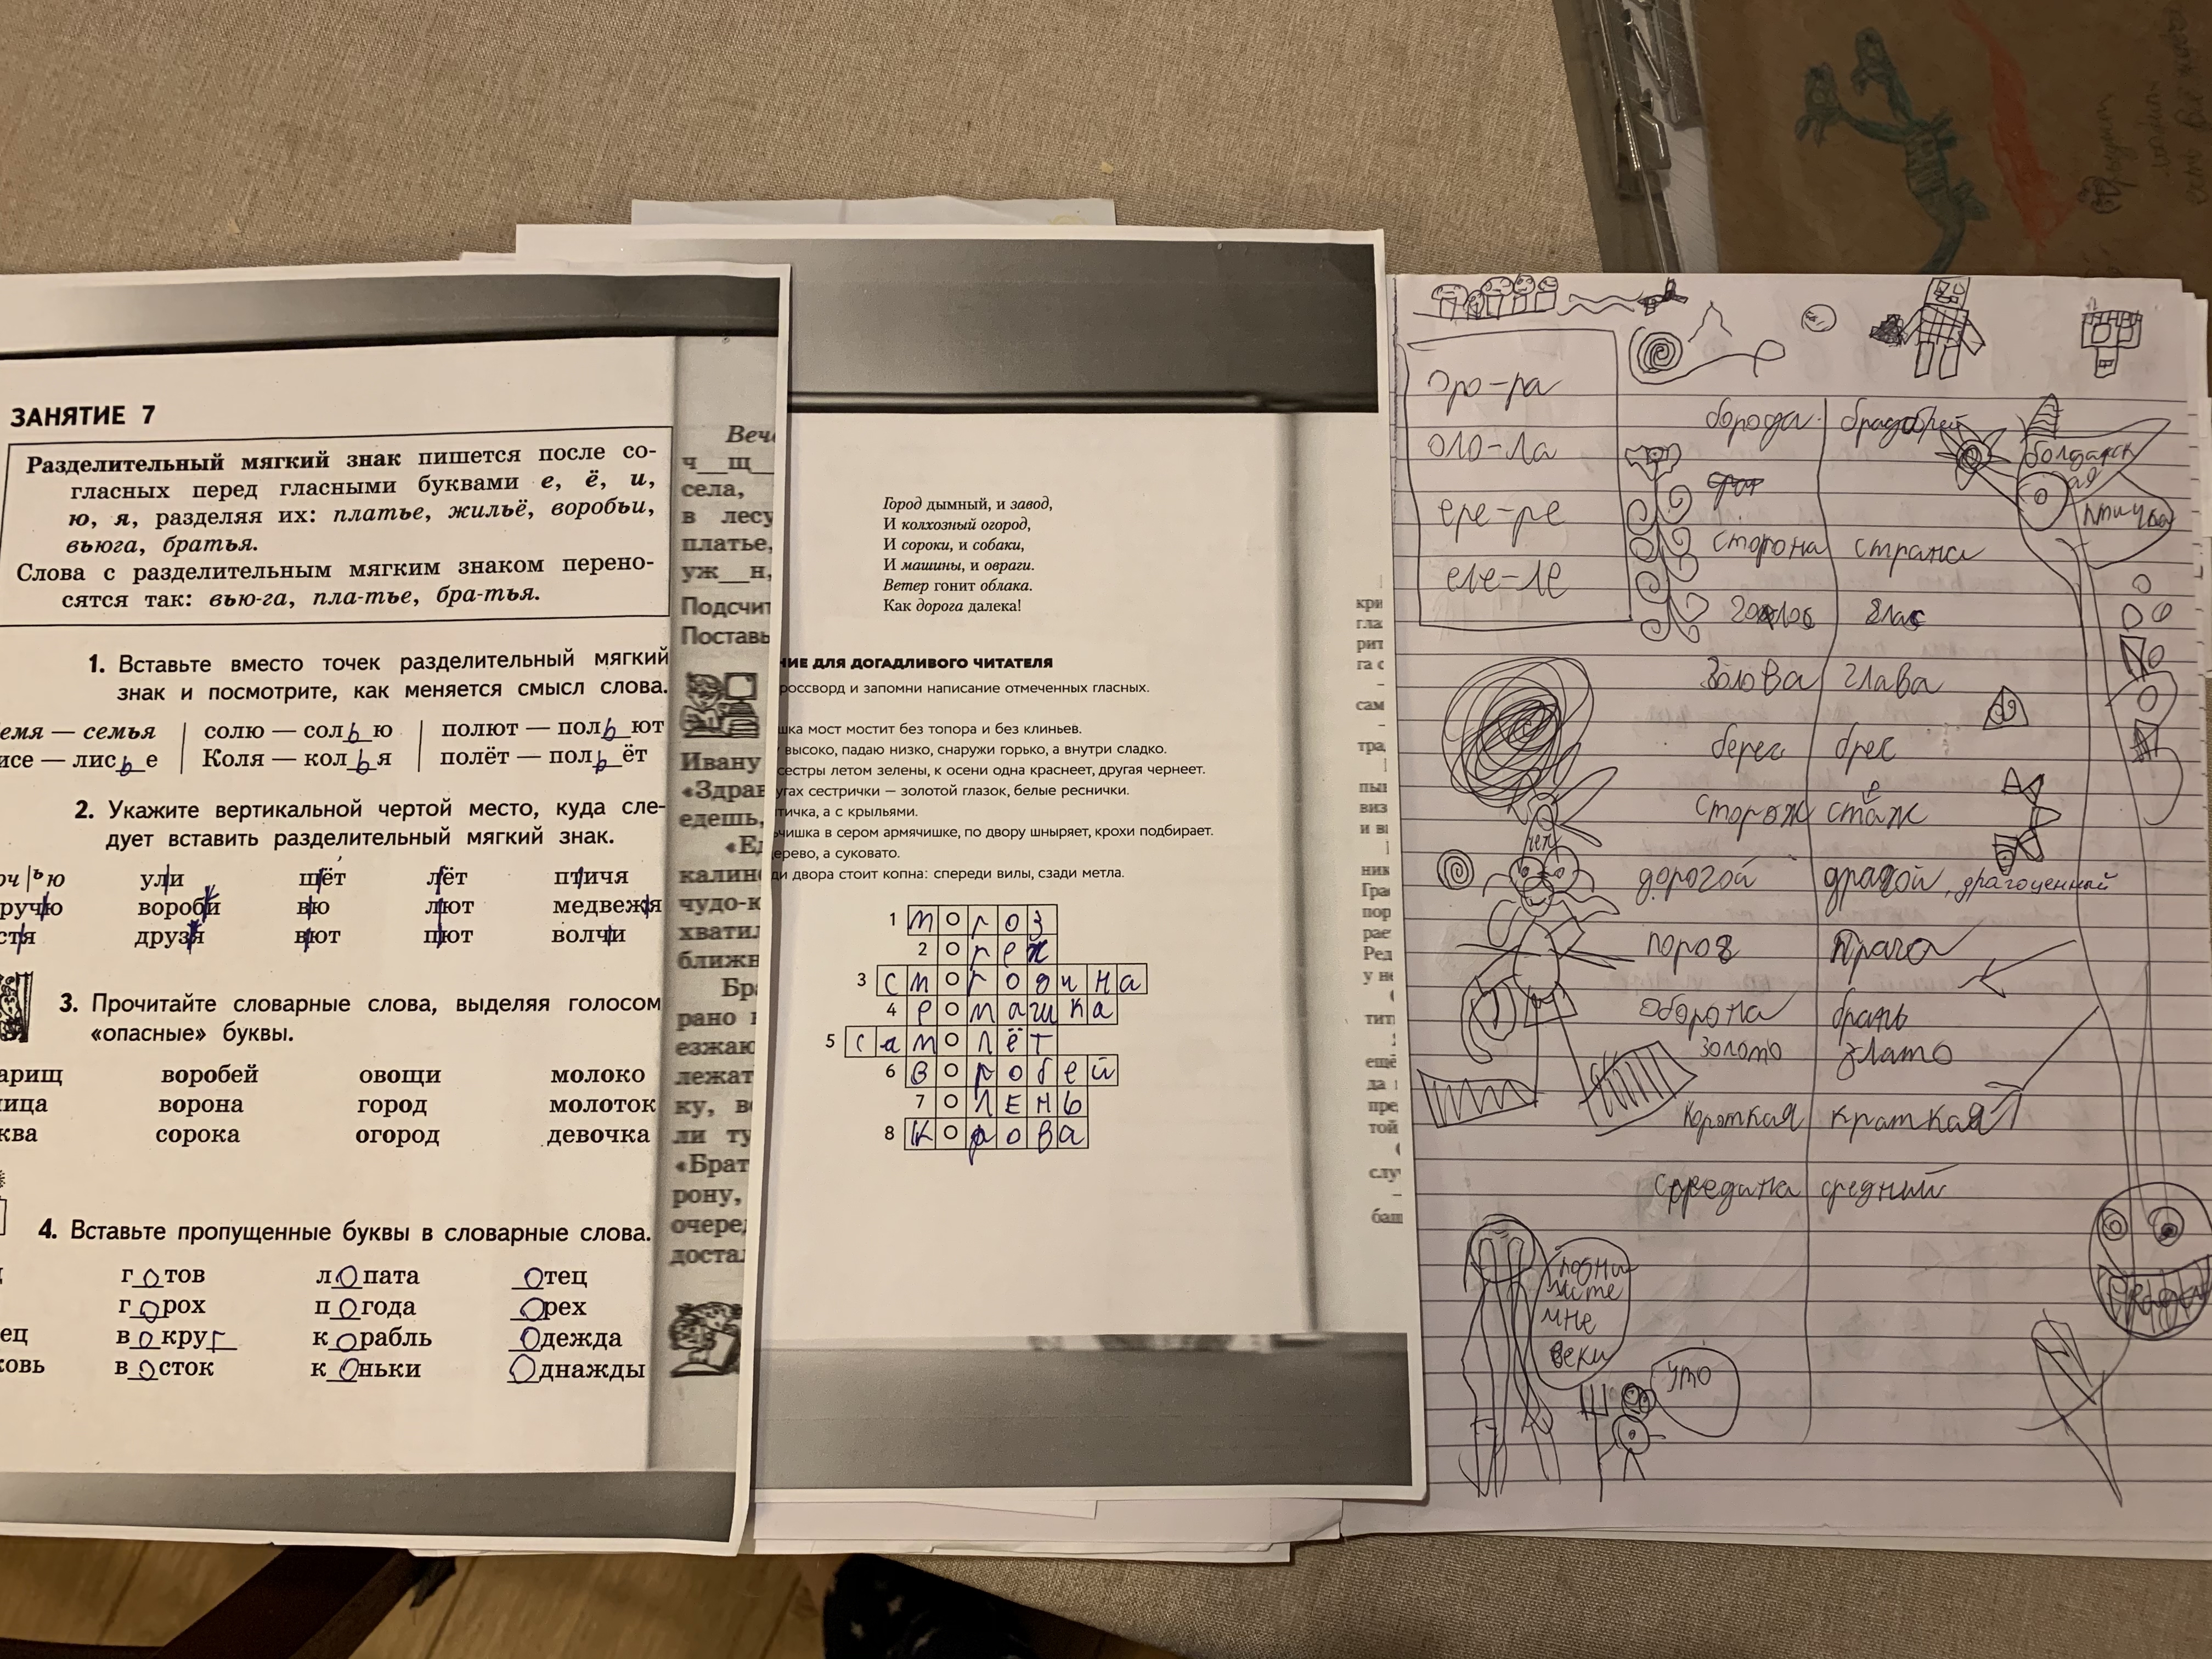 ЗАНЯТИЕ 7
Разделительный мягкий знак пишется после со-
гласных перед гласными буквами е, ё, и,
ю, я, разделяя их: платье, жильё, воробьи,
вьюга, братья.
Слова с разделительным мягким знаком перено-
сятся так: вью-га, пла-тье, бра-тья.
1. Вставьте вместо точек разделительный мягкий
знак и посмотрите, как меняется смысл слова.
емя — семья солю — солью полют — польют
исе — лисье Коля — колья полёт — польёт
2. Укажите вертикальной чертой место, куда сле-
дует вставить разделительный мягкий знак.
оч|ью ул|и ш|ёт л|ёт пт|ичя
руч|ю вороб|и в|ю л|ют медвеж|я
ст|я друз|я в|ют п|ют волч|и
3. Прочитайте словарные слова, выделяя голосом
«опасные» буквы.
арищ воробей овощи молоко
ица ворона город молоток
ква сорока огород девочка
4. Вставьте пропущенные буквы в словарные слова.
готов лопата отец
горох погода Орех
ец вокруг корабль Одежда
ковь восток коньки Однажды
Веч
ч__щ__
села,
в лесу
платье,
уж__н,
Подсчит
Поставь
Ивану
«Здрав
едешь,
«Ед
калин
чудо-к
хватил
ближн
Бр
рано
езжаю
лежат
ку, в
ли ту
«Брат
рону,
очере
достал
Город дымный, и завод,
И колхозный огород,
И сороки, и собаки,
И машины, и овраги.
Ветер гонит облака.
Как дорога далека!
НИЕ ДЛЯ ДОГАДЛИВОГО ЧИТАТЕЛЯ
россворд и запомни написание отмеченных гласных.
шка мост мостит без топора и без клиньев.
высоко, падаю низко, снаружи горько, а внутри сладко.
сестры летом зелены, к осени одна краснеет, другая чернеет.
угах сестрички — золотой глазок, белые реснички.
тичка, а с крыльями.
чишка в сером армячишке, по двору шныряет, крохи подбирает.
ерево, а суковато.
ди двора стоит копна: спереди вилы, сзади метла.
1 мороз
2 орех
3 смородина
4 ромашка
5 самолёт
6 воробей
7 оЛЕНЬ
8 Корова
кри
гла
рит
га с
сам
тра
пы
виз
и в
ник
Гра
пор
рае
Ред
у не
тит
ещё
да
пре
той
слу
баш
оро-ра
оло-ла
ере-ре
еле-ле
борода брадобрей
сторона страна
голос глас
голова глава
берег брег
сторож стаж
е
дорогой драгой, драгоценный
порог Прага
оборона брань
золото злато
короткая краткая
середина средний
птичка
нет
подни
мите
мне
веки
УТО